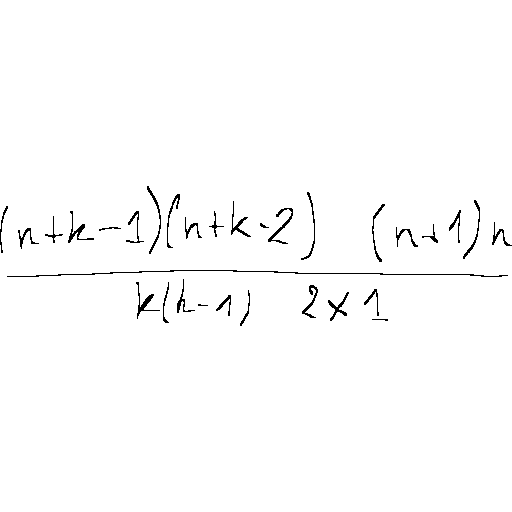 (n+k-1)(n+k-2) (n+1)n
k(k-1) 2×1